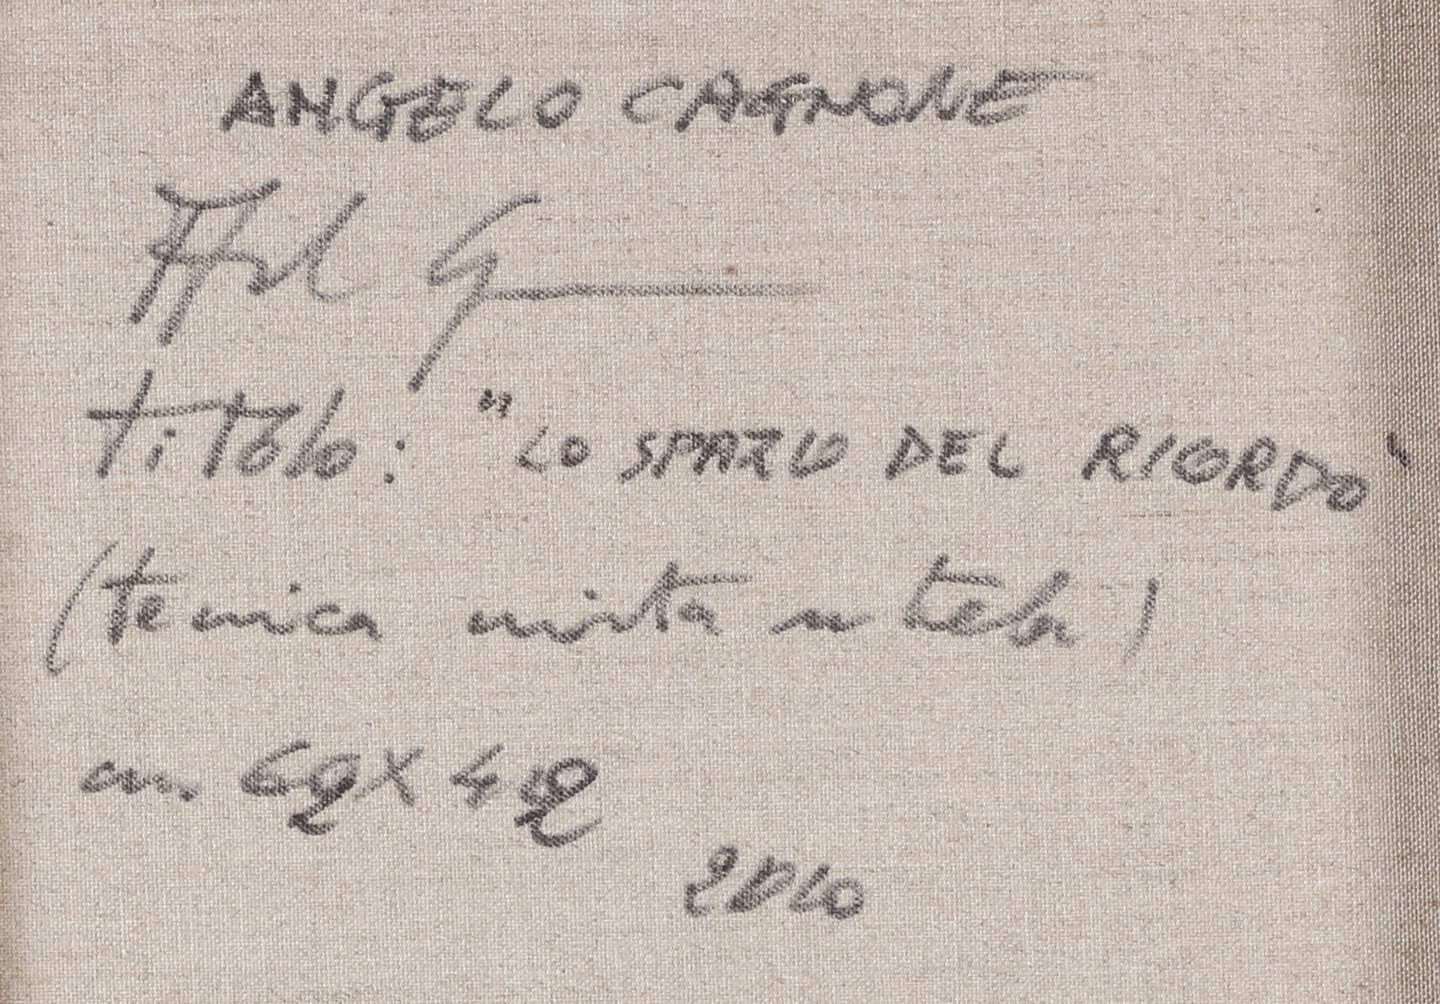 ANGELO CAGNONE
titolo: "LO SPAZIO DEL RICORDO"
(tecnica mista su tela)
cm. X
2010